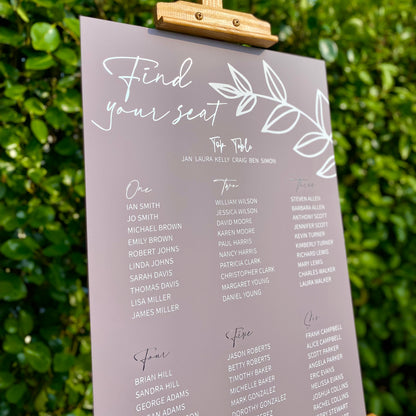 Find
your seat
Top Table
JAN LAURA KELLY CRAIG BEN SIMON
One
IAN SMITH
JO SMITH
MICHAEL BROWN
EMILY BROWN
ROBERT JOHNS
LINDA JOHNS
SARAH DAVIS
THOMAS DAVIS
LISA MILLER
JAMES MILLER
Two
WILLIAM WILSON
JESSICA WILSON
DAVID MOORE
KAREN MOORE
PAUL HARRIS
NANCY HARRIS
PATRICIA CLARK
CHRISTOPHER CLARK
MARGARET YOUNG
DANIEL YOUNG
Three
STEVEN ALLEN
BARBARA ALLEN
ANTHONY SCOTT
JENNIFER SCOTT
KEVIN TURNER
KIMBERLY TURNER
RICHARD LEWIS
MARY LEWIS
CHARLES WALKER
LAURA WALKER
Four
BRIAN HILL
SANDRA HILL
GEORGE ADAMS
SUSAN ADAMS
Five
JASON ROBERTS
BETTY ROBERTS
TIMOTHY BAKER
MICHELLE BAKER
MARK GONZALEZ
DOROTHY GONZALEZ
Six
FRANK CAMPBELL
ALICE CAMPBELL
SCOTT PARKER
ANGELA PARKER
ERIC EVANS
MELISSA EVANS
JOSHUA COLLINS
NICOLE COLLINS
STEWART